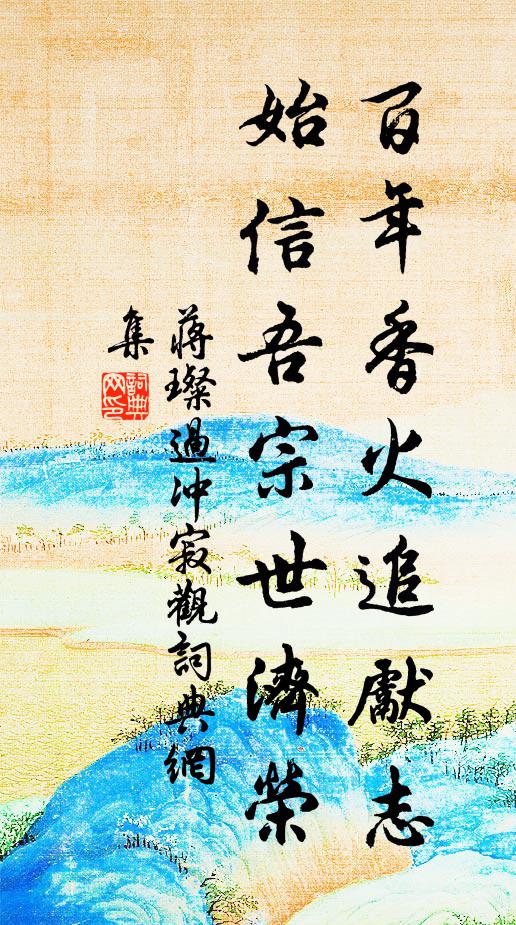 百年香火追獻志
始信吾宗世濟榮
蔣璨過冲寂觀詞典網
集
詞典
网印